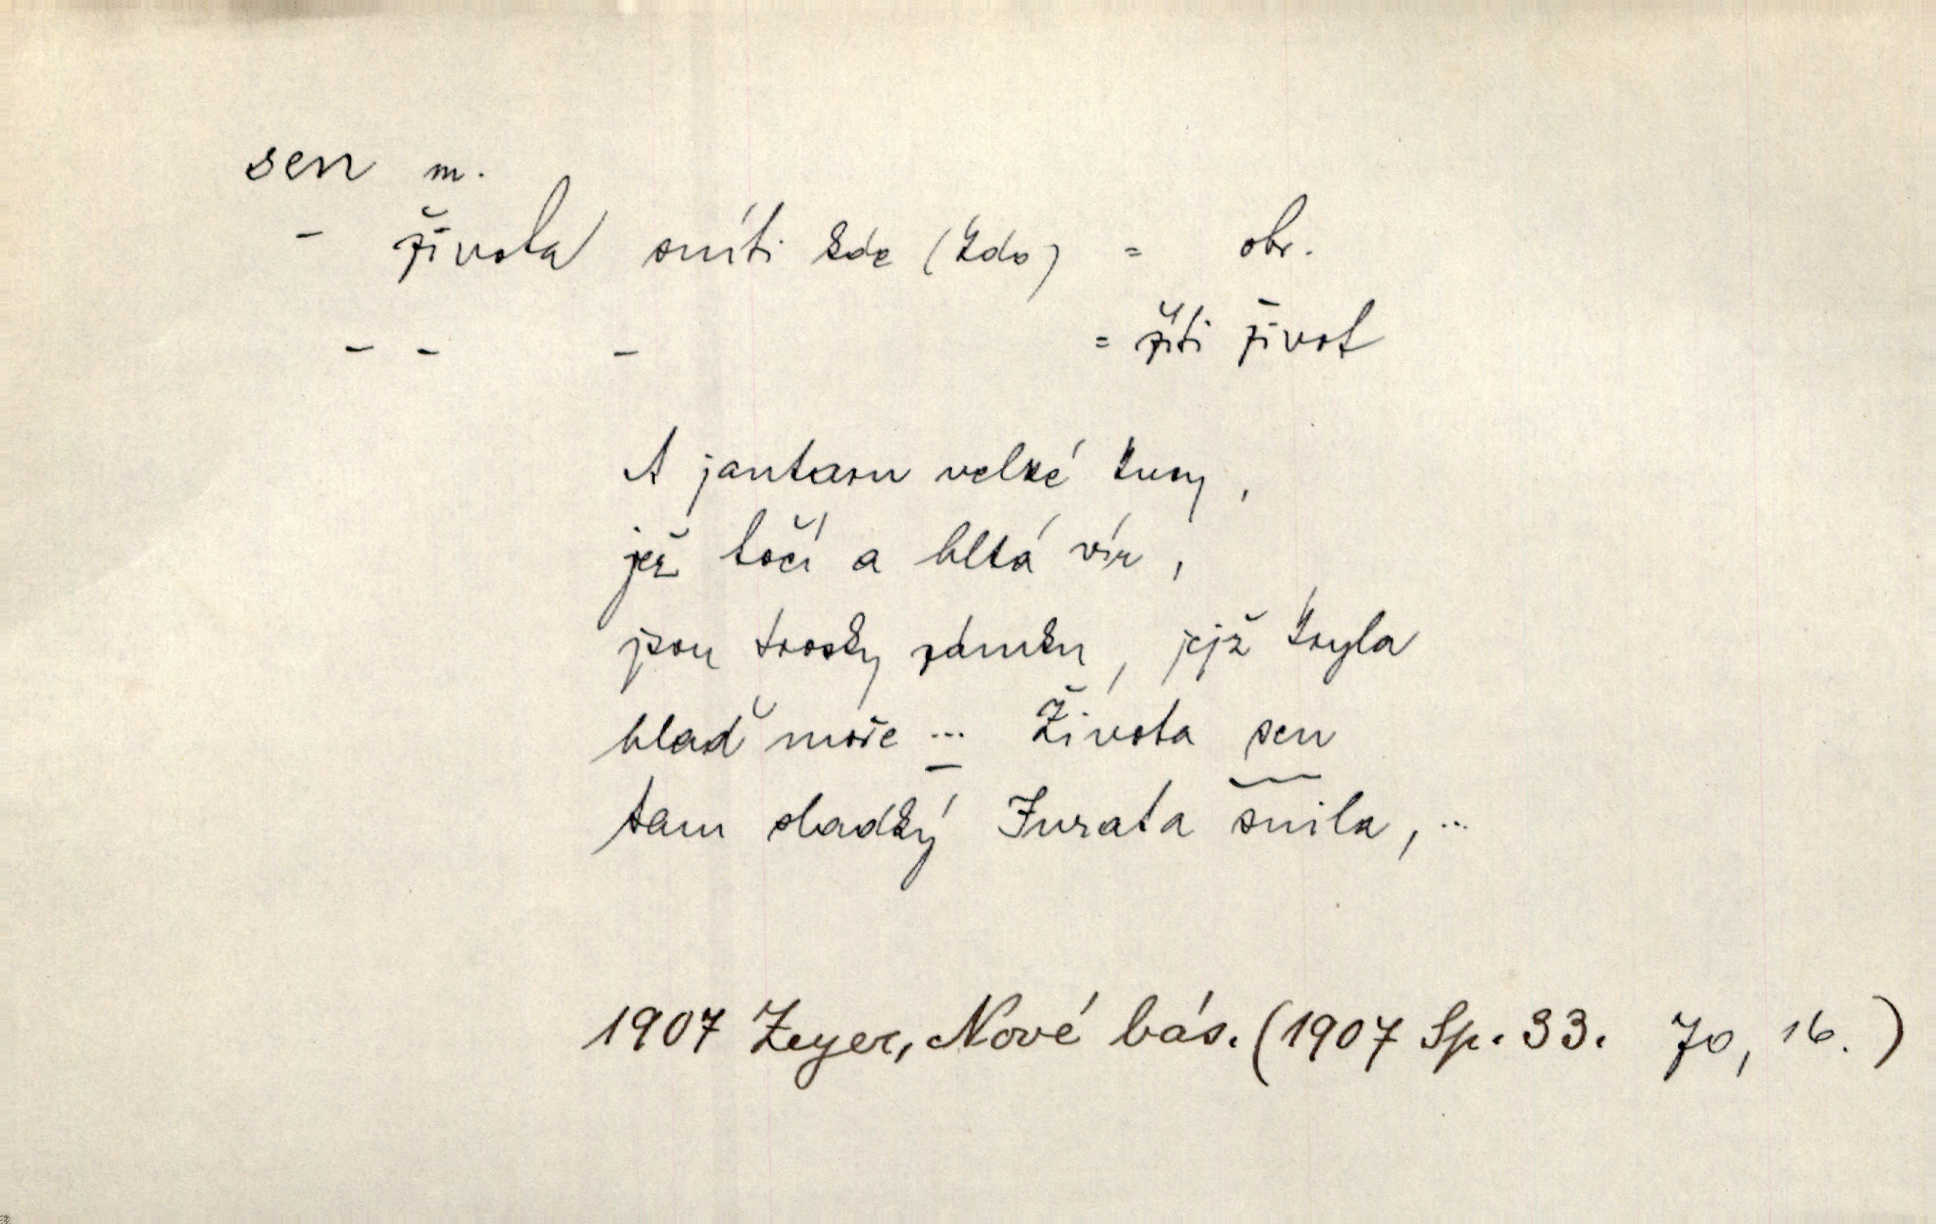 sen m.
- života sníti kde (kdo) = obr.
- - - = žíti život
A jantaru velké kusy,
jež točí a hltá vír,
jsou trosky zámku, jejž kryla
hlaď moře ... Života sen
tam sladký Jurata snila, ...
1907 Zeyer, Nové bás. (1907 Sp. 33. 70, 16.)